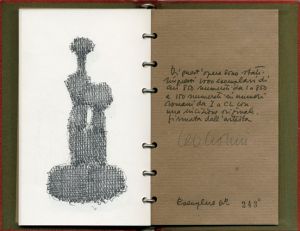 Di quest'opera sono stati
impressi 1000 esemplari di
cui 850 numerati da 1 a 850
e 150 numerati in numeri
romani da I a CL con
una incisione originale,
firmata dall'artista
Esemplare N° 343